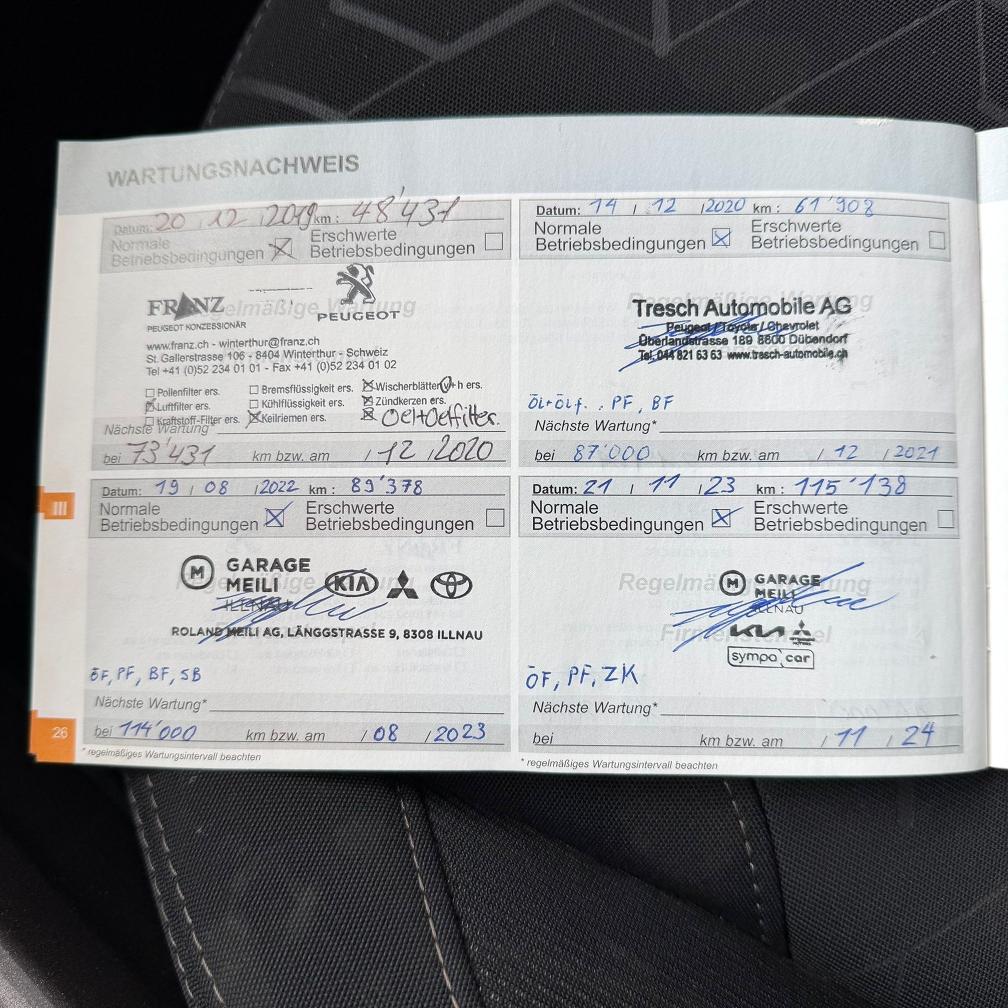 WARTUNGSNACHWEIS
Datum: 20 / 12 / 2019 km : 48'431
Normale Betriebsbedingungen ☒ Erschwerte Betriebsbedingungen ☐
Regelmäßige Wartung
FRANZ
PEUGEOT KONZESSIONÄR
PEUGEOT
www.franz.ch - winterthur@franz.ch
St. Gallerstrasse 106 - 8404 Winterthur - Schweiz
Tel +41 (0)52 234 01 01 - Fax +41 (0)52 234 01 02
☐ Pollenfilter ers. ☐ Bremsflüssigkeit ers. ☒ Wischerblätter v+h ers.
☒ Luftfilter ers. ☐ Kühlflüssigkeit ers. ☒ Zündkerzen ers.
☐ Kraftstoff-Filter ers. ☒ Keilriemen ers. ☒ Oel+Oelfilter.
Nächste Wartung*
bei 73'431 km bzw. am / 12 / 2020
Datum: 14 / 12 / 2020 km : 61'908
Normale Betriebsbedingungen ☒ Erschwerte Betriebsbedingungen ☐
Regelmäßige Wartung
Tresch Automobile AG
Peugeot / Toyota / Chevrolet
Überlandstrasse 189 8600 Dübendorf
Tel. 044 821 63 63 www.tresch-automobile.ch
ÖL+ÖLf., PF, BF
Nächste Wartung*
bei 87'000 km bzw. am / 12 / 2021
III
Datum: 19 / 08 / 2022 km : 89'378
Normale Betriebsbedingungen ☒ Erschwerte Betriebsbedingungen ☐
Regelmäßige Wartung
M GARAGE MEILI ILLNAU KIA
ROLAND MEILI AG, LÄNGGSTRASSE 9, 8308 ILLNAU
ÖF, PF, BF, SB
Nächste Wartung*
bei 114'000 km bzw. am / 08 / 2023
* regelmäßiges Wartungsintervall beachten
Datum: 21 / 11 / 23 km : 115'138
Normale Betriebsbedingungen ☒ Erschwerte Betriebsbedingungen ☐
Regelmäßige Wartung
Firmenstempel
M GARAGE MEILI ILLNAU
KIA
sympa car
ÖF, PF, ZK
Nächste Wartung*
bei km bzw. am / 11 / 24
* regelmäßiges Wartungsintervall beachten
26